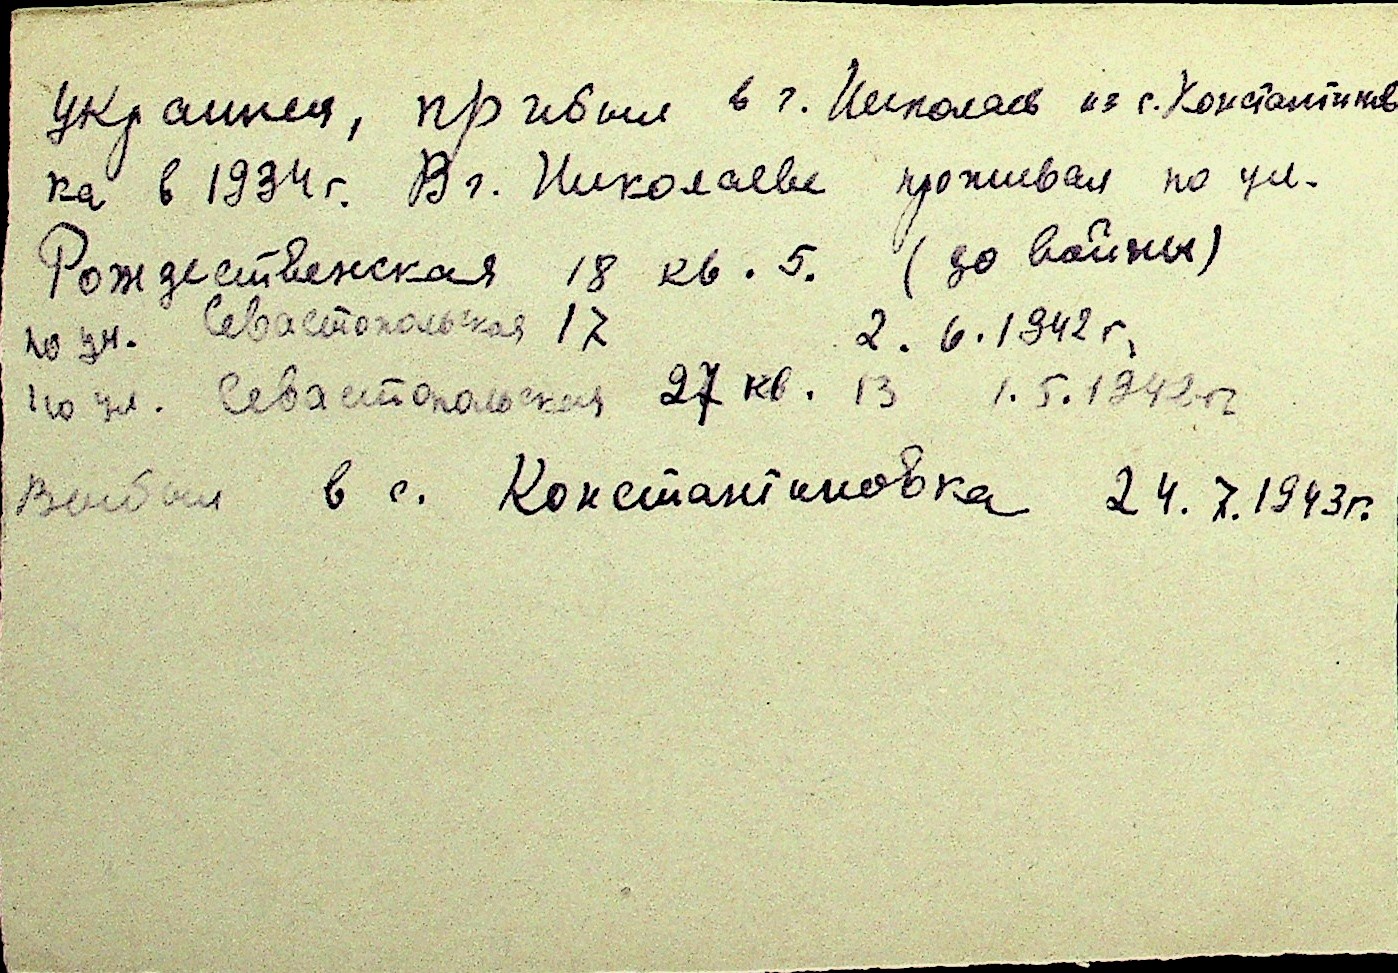 украинец, прибыл в г. Николаев из с. Константинов
ка в 1934 г. В г. Николаеве проживал по ул.
Рождественская 18 кв. 5. (до войны)
по ул. Севастопольская 17 2. 6. 1942 г.
по ул. Севастопольская 27 кв. 13 1. 5. 1942 г.
Выбыл в с. Константиновка 24. 7. 1943 г.